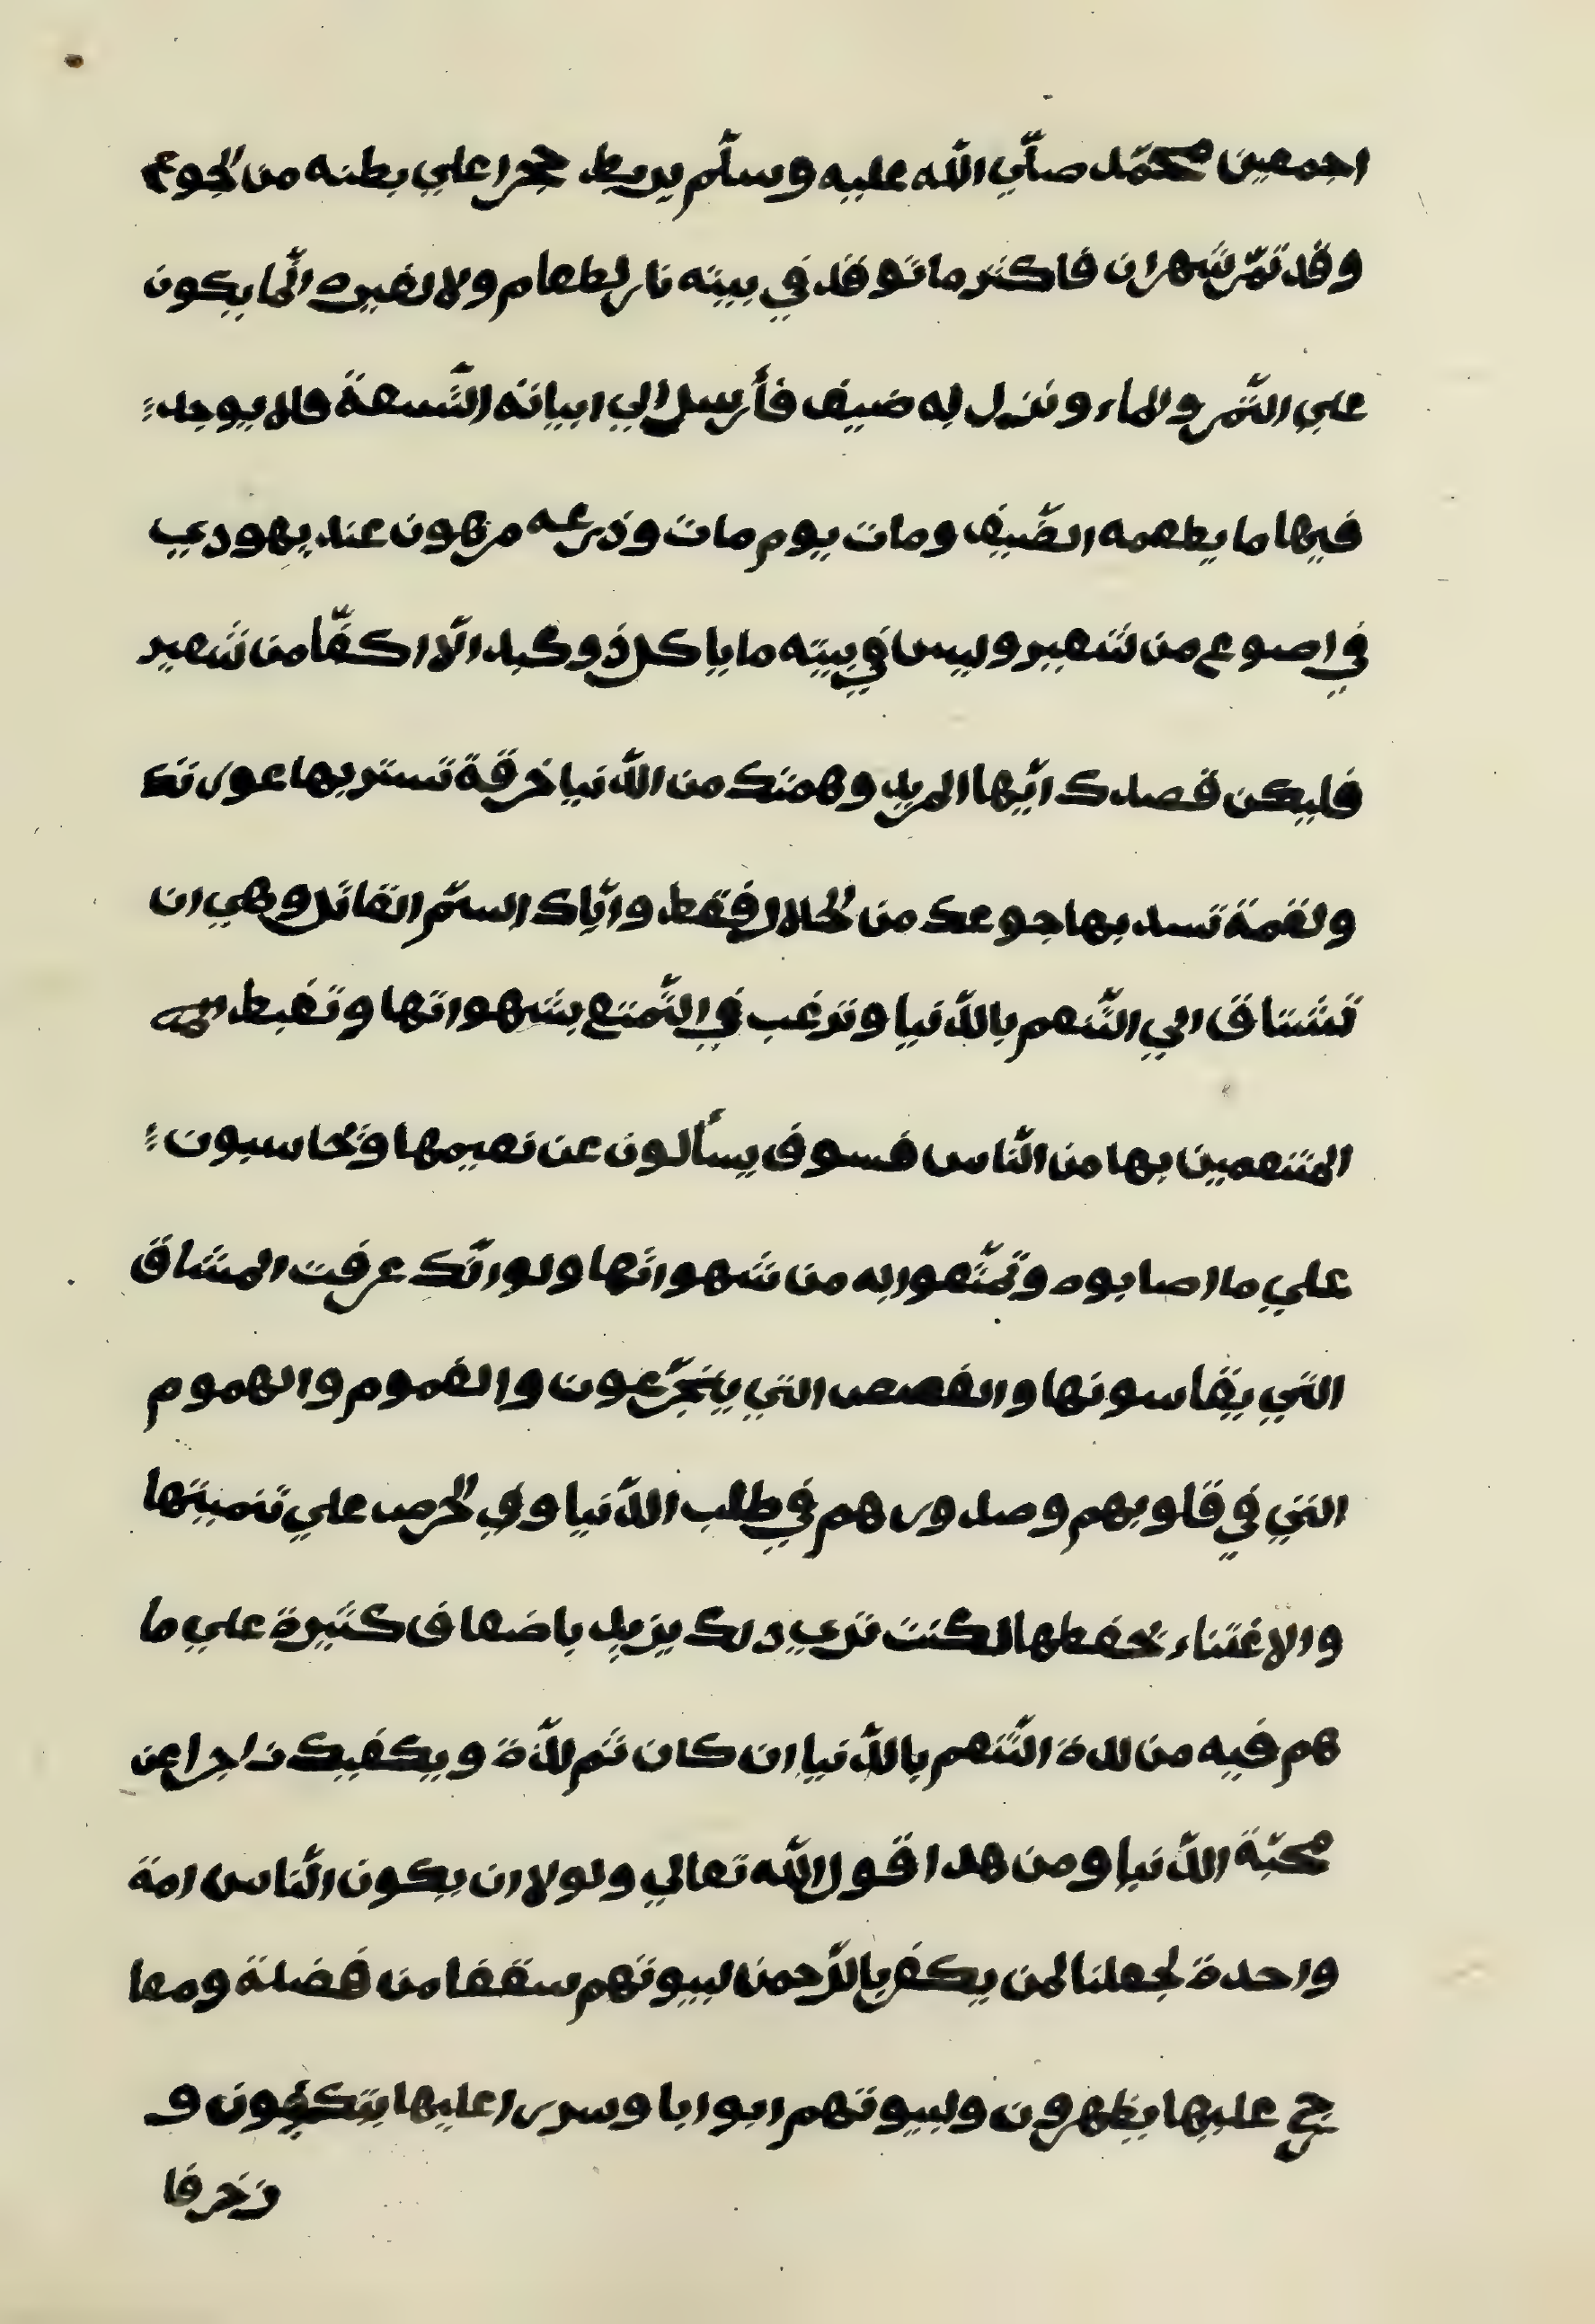 اجمعين محمّد صلّي اللّه عليه وسلّم يربط حجرا علي بطنه من الجوع
وقد تمّر شهران فاكثر ما توقد في بيته نار لطعام ولا لغيره انّما يكون
علي التّمر والماء ونزل به ضيف فأرسل الي ابياته التّسعة فلا يوجد
فيها ما يطعمه الضّيف ومات يوم مات وذرعه مرهون عند يهودي
في اصوع من شعير وليس في بيته ما ياكل ذو كبد الّا كفّا من شعير
فليكن قصدك ايّها المريد وهمتك من الدّنيا خرقة تستر بها عورتك
ولقمة تسد بها جوعك من الحلال فقط وايّاك السمّ القاتل وهي ان
تشتاق الي التّنعم بالدّنيا وترغب في التّمتع بشهواتها وتغبط
المتنعمين بها من النّاس فسوف يسألون عن نعيمها ويحاسبون
علي ما اصابوه وتمتّعوا به من شهواتها ولو انّك عرفت المشاق
التي يقاسونها والغصص التي يتجرّعون والغموم والهموم
التي في قلوبهم وصدورهم في طلب الدّنيا وفي الحرص علي تنميتها
والاغتناء بحفظها لكنت تري ذلك يزيد باضعاف كثيرة علي ما
هم فيه من لذة التّنعم بالدّنيا ان كان ثم لذّة ويكفيك زاجرا عن
محبّة الدّنيا ومن هذا قول اللّه تعالي ولولا ان يكون النّاس امة
واحدة لجعلنا لمن يكفر بالرّحمن لبيوتهم سقفا من فضلة ومعا
رج عليها يظهرون ولبيوتهم ابوابا وسررا عليها يتكؤون و
زخرفا